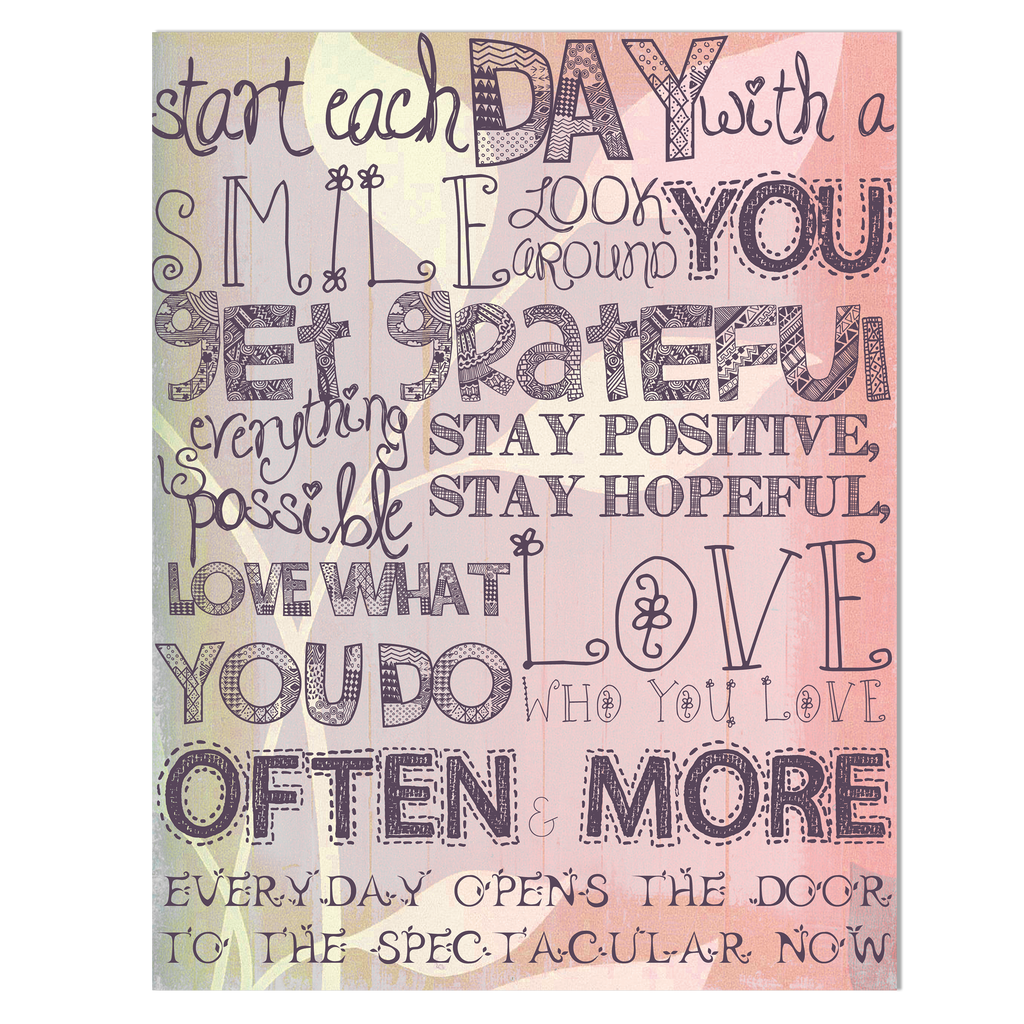 start each DAY with a
SMiLE LOOK AROUND YOU
gEt gRatEFUl
everything
is
possible
STAY POSITIVE,
STAY HOPEFUL,
LOVE WHAT
YOU DO
LOVE
WHO YOU LOVE
OFTEN & MORE
EVERYDAY OPENS THE DOOR
TO THE SPECTACULAR NOW